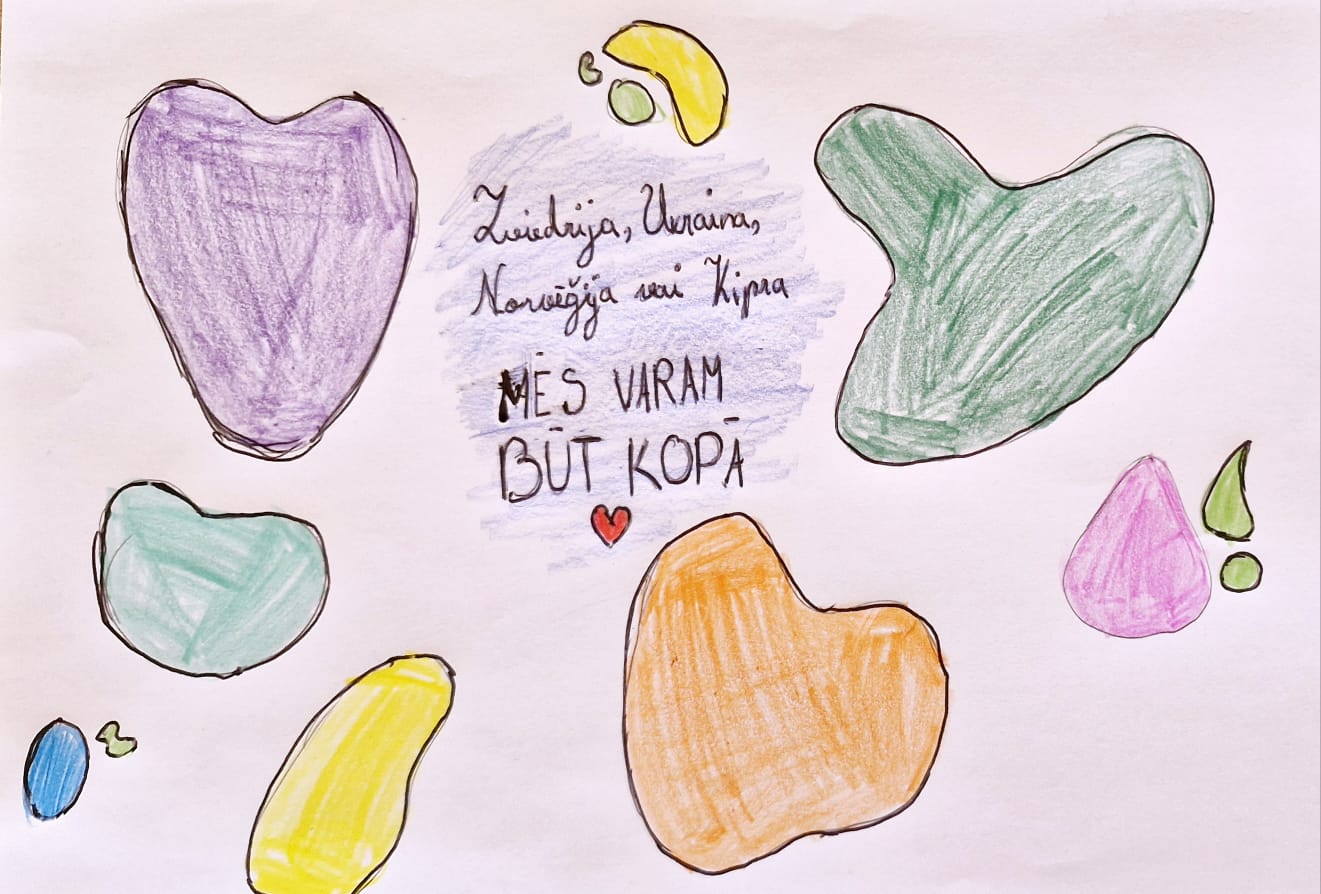 Zviedrija, Ukraina,
Norvēģija vai Kipra
MĒS VARAM
BŪT KOPĀ